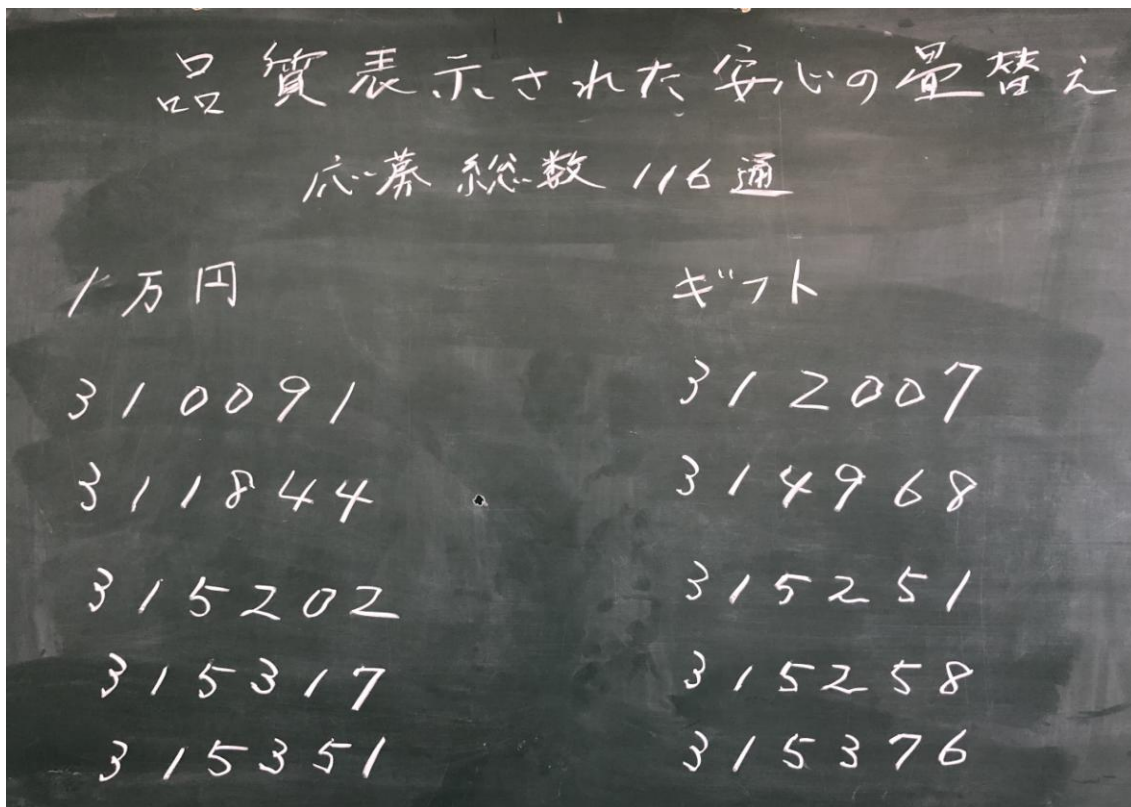 品質表示された安心の畳替え
応募総数 116通
1万円
310091
311844
315202
315317
315351
ギフト
312007
314968
315251
315258
315376